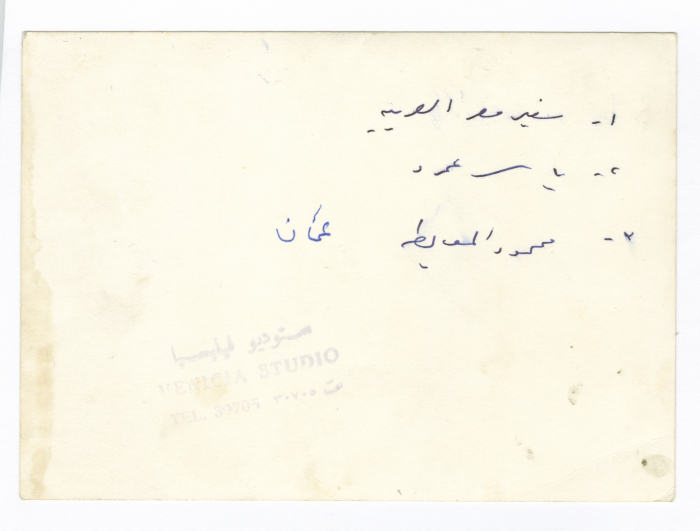 ١- سفير مصر العربية
٢- ياسر عمرو
٣- محمود المعايطه عمّان
ستوديو فينيسيا
VENICIA STUDIO
TEL. 39705 ت ٣٩٧٠٥